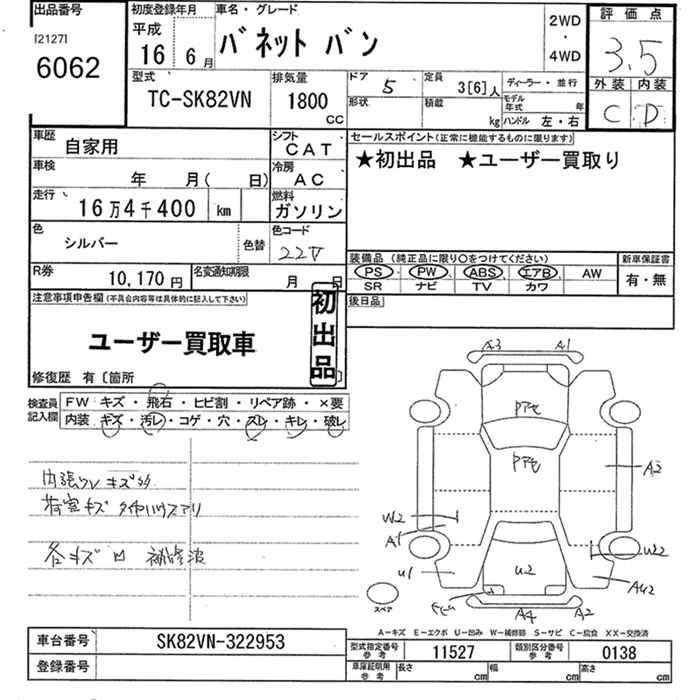 出品番号
[2127]
6062
初度登録年月
平成
16年6月
車名・グレード
バネット バン
2WD
・
4WD
評価点
3.5
外装 内装
C D
型式
TC-SK82VN
排気量
1800
CC
ドア 5
定員 3[6]人
ディーラー・並行
形状
積載 kg
モデル年式 年
ハンドル 左・右
車歴 自家用
シフト CAT
車検 年 月( 日)
冷房 AC
走行 16万4千400 km
燃料 ガソリン
色 シルバー
色替
色コード 22V
R券 10,170円
名変通知期限 月 日
セールスポイント(正常に機能するものに限ります)
★初出品 ★ユーザー買取り
装備品(純正品に限り○をつけてください)
PS・PW・ABS・エアB・AW
SR ナビ TV カワ
新車保証書
有・無
後日品
注意事項申告欄(不具合内容等は具体的に記入して下さい)
ユーザー買取車
初出品
修復歴 有〔箇所
検査員記入欄
FW キズ・飛石・ヒビ割・リペア跡・×要
内装・キズ・汚レ・コゲ・穴・スレ・キレ・破レ
内張りレ キズ
荷室キズ タイヤハウスアリ
各キズ凹 補修波
A3 A1
アモ
アモ
A3
W2
A1
U1
U2
U22
AU2
A4 A2
スペア
A-キズ E-エクボ U-凹み W-補修跡 S-サビ C-腐食 XX-交換済
車台番号 SK82VN-322953
登録番号
型式指定番号参考 11527
類別区分番号参考 0138
車庫証明用参考 長さ cm 幅 cm 高さ cm